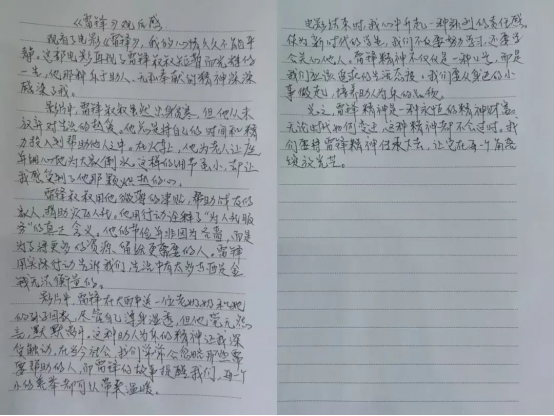 《雷锋》观后感
观看了电影《雷锋》，我的心情久久不能平
静。这部电影再现了雷锋叔叔短暂而光辉的
一生，他那种乐于助人、无私奉献的精神深深
感染了我。
影片中，雷锋叔叔虽然出身贫寒，但他从未
放弃对生活的热爱。他总是将自己的时间和精
力投入到帮助他人中。在火车上，他为老人让座
细心地为大家倒水。这样的细节虽小，却让
我感受到了他那颗炽热的心。
雷锋叔叔用他微薄的津贴，帮助战友的
家人，捐助灾区人民。他用行动诠释了“为人民服
务”的真正含义。他的节俭并非因为吝啬，而是
为了将更多的资源，留给更需要的人。雷锋
用实际行动告诉我们，生活中有太多东西是金
钱无法衡量的。
影片中，雷锋在大雨中送一位老奶奶和她
的孙子回家，尽管自己浑身湿透，但他毫无怨
言，默默离开。这种助人为乐的精神让我深
受触动。在当今社会，我们常常会忽略那些需
要帮助的人，而雷锋的故事提醒我们，每一个
小的善举都可以带来温暖。
电影结束时，我心中升起一种强烈的责任感。
作为新时代的学生，我们不仅要努力学习，还要学
会关心他人。雷锋精神不仅仅是一种口号，而是
我们应该追求的生活态度。我们要从身边的小
事做起，培养助人为乐的品格。
总之，雷锋精神是一种永恒的精神财富。
无论时代如何变迁，这种精神都不会过时。我
们要将雷锋精神传承下去，让它在每一个角落
绽放光芒。